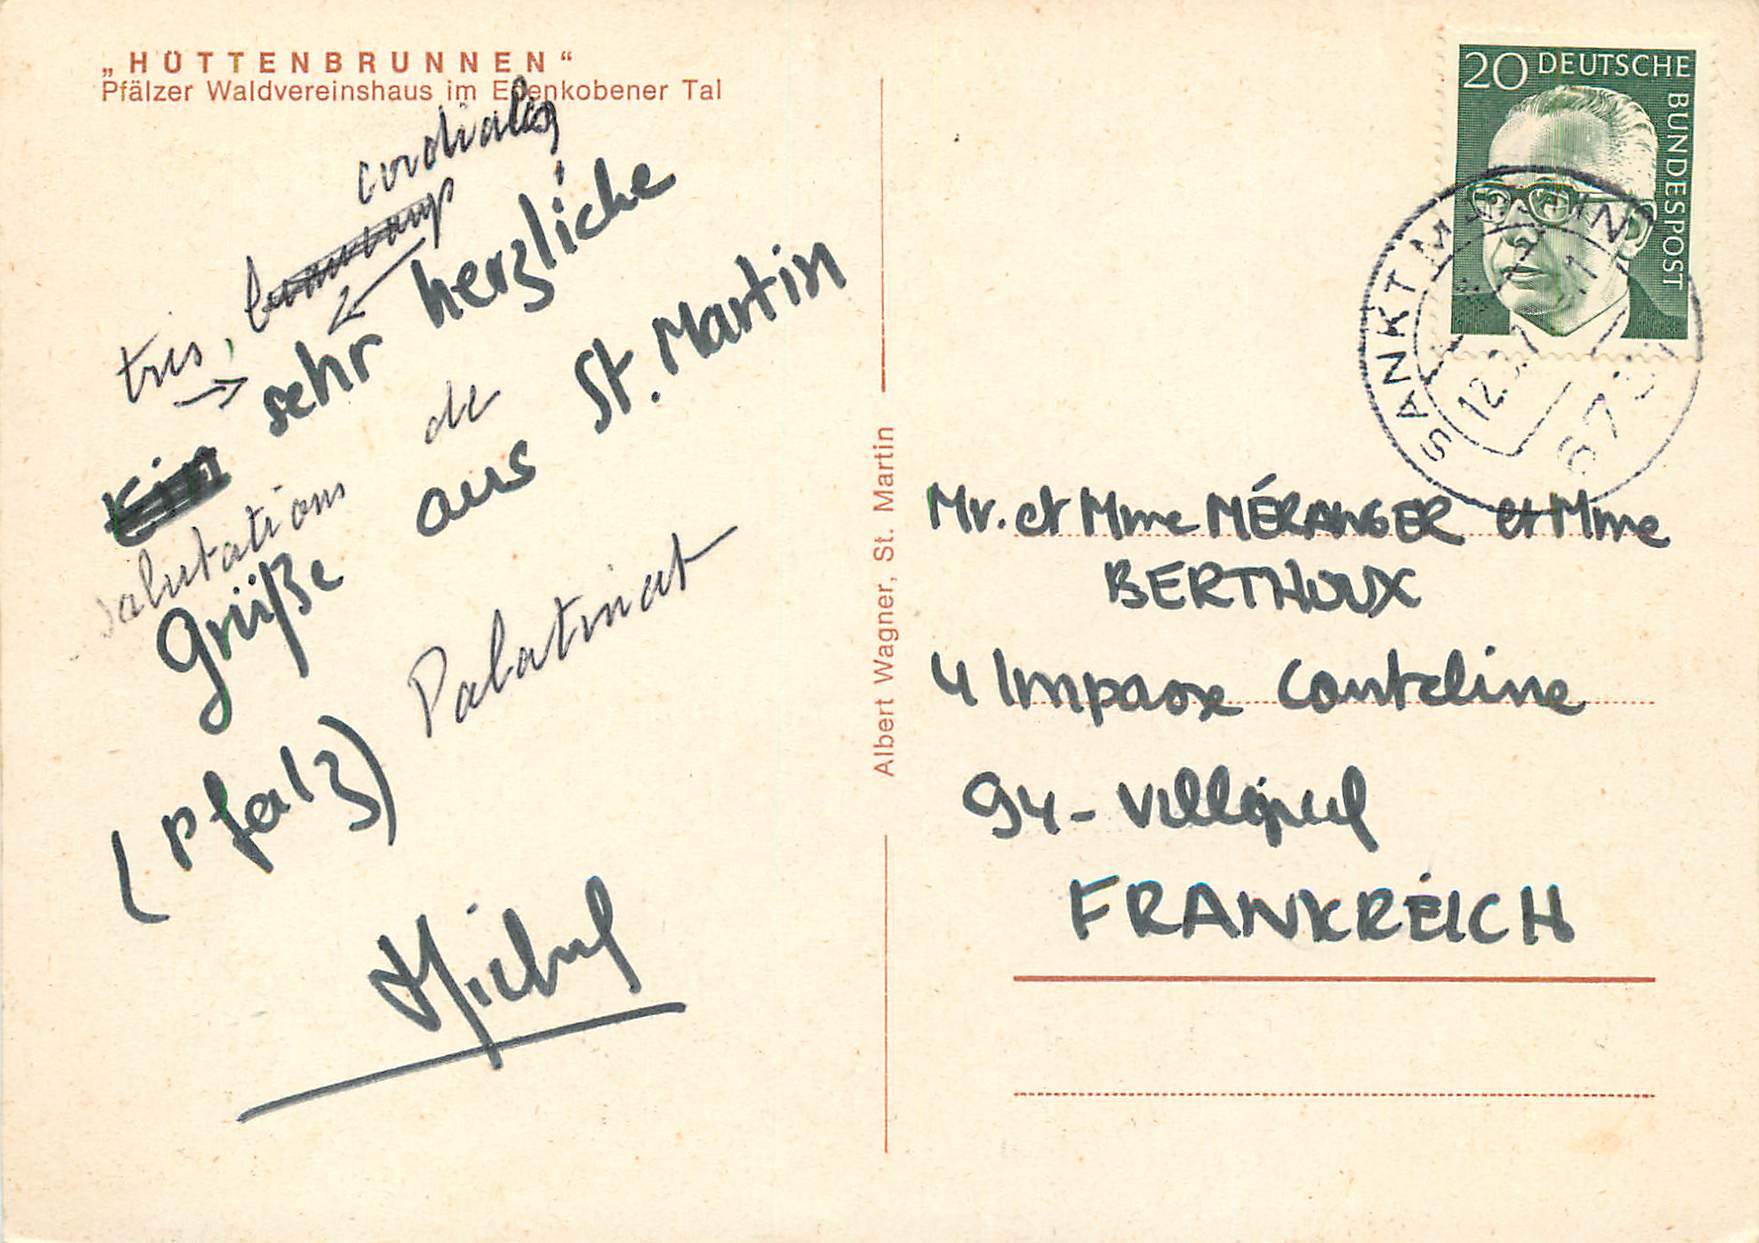 „HÜTTENBRUNNEN“
Pfälzer Waldvereinshaus im Edenkobener Tal
cordiales
très,
sehr herzliche
de
salutations
Grüße aus St. Martin
Palatinat
(Pfalz)
Michel
Albert Wagner, St. Martin
20 DEUTSCHE BUNDESPOST
SANKT MARTIN
Mr. et Mme MÉRANGER et Mme
BERTHOUX
4 Impasse Canteline
94 - Villejuif
FRANKREICH